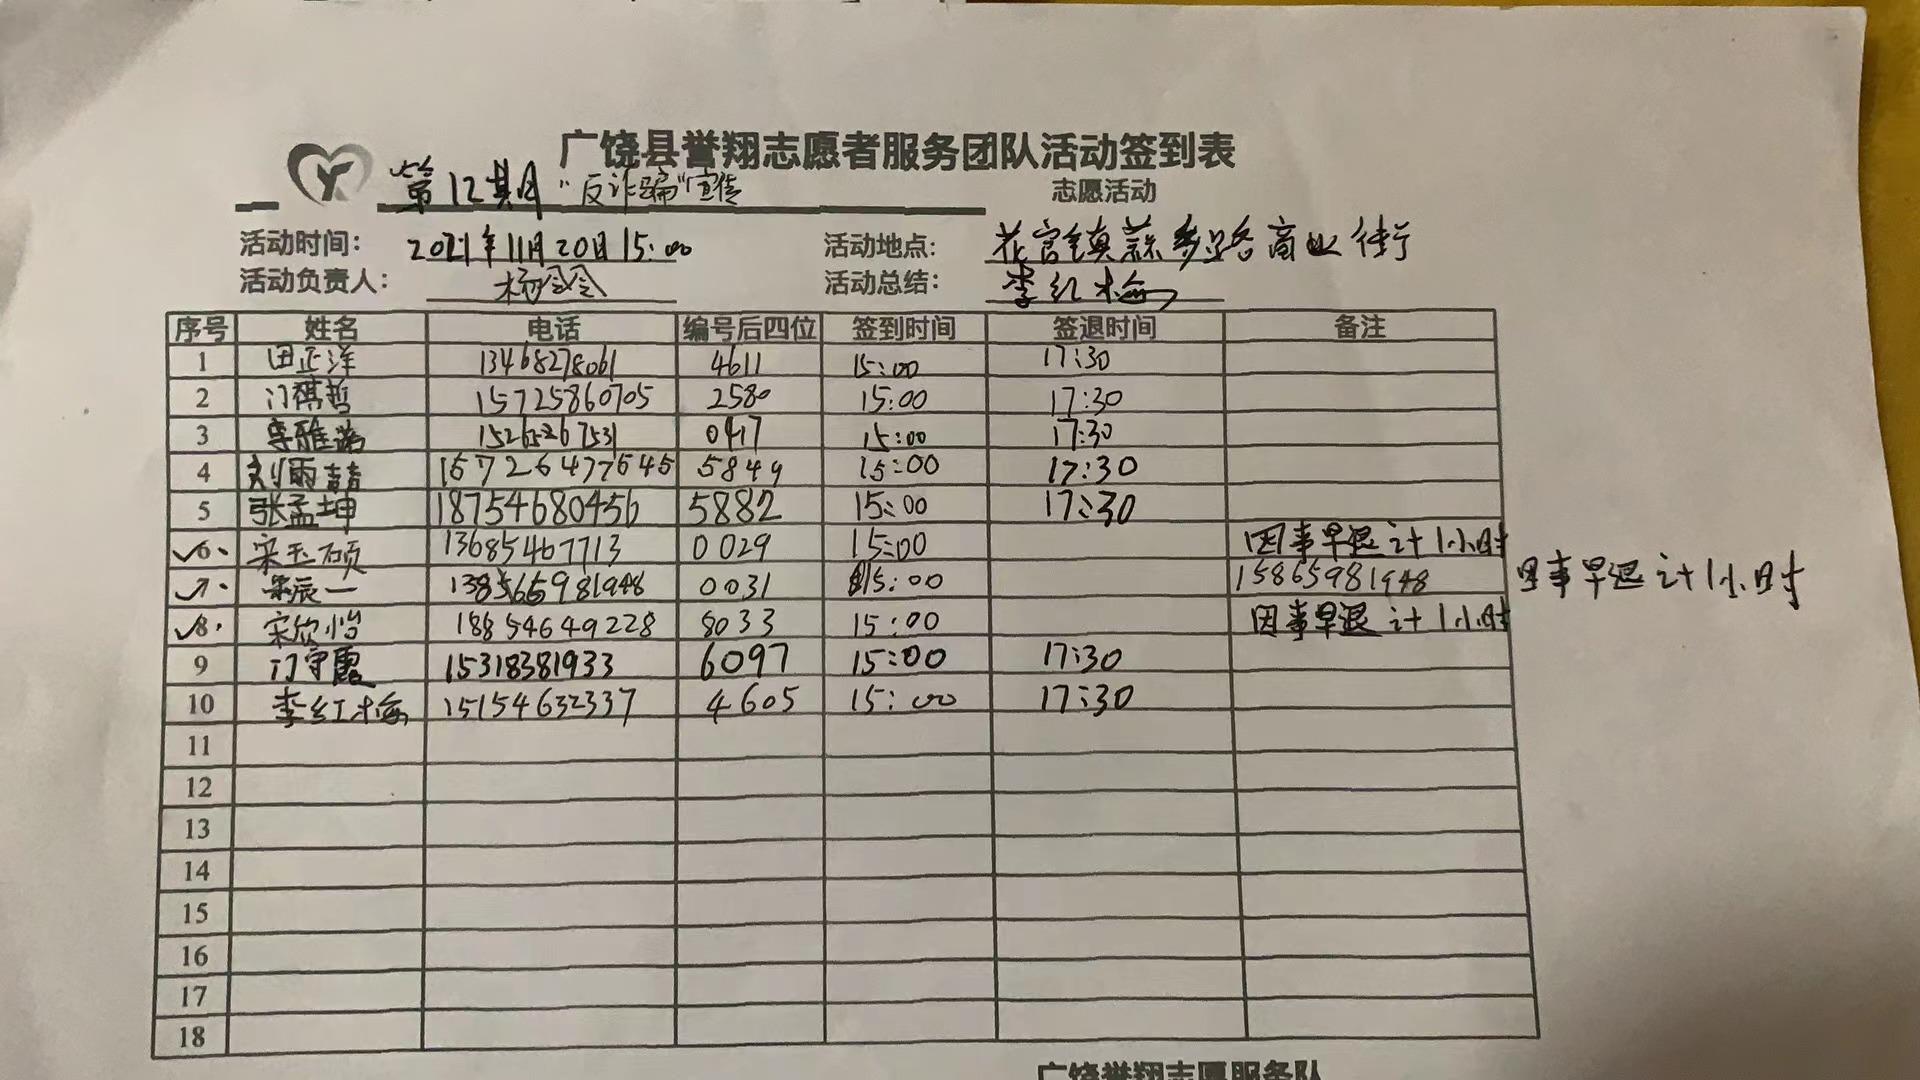 广饶县誉翔志愿者服务团队活动签到表
第12期 "反诈骗"宣传 志愿活动
活动时间: 2021年11月20日15:00 活动地点: 花官镇蒜乡路商业街
活动负责人: 杨会会 活动总结: 李红梅
序号 姓名 电话 编号后四位 签到时间 签退时间 备注
1 田正洋 13468278061 4611 15:00 17:30
2 门祺哲 15725860705 2580 15:00 17:30
3 李雅诺 15265267531 0417 15:00 17:30
4 刘雨喆 15726477645 5849 15:00 17:30
5 张孟坤 18754680456 5882 15:00 17:30
6 宋玉硕 13685467713 0029 15:00 因事早退计1小时
7 宋辰一 0031 15:00 15865981948 因事早退计1小时
8 宋欣怡 18854649228 8033 15:00 因事早退计1小时
9 门守霞 15318381933 6097 15:00 17:30
10 李红梅 15154632337 4605 15:00 17:30
11
12
13
14
15
16
17
18
广饶誉翔志愿服务队